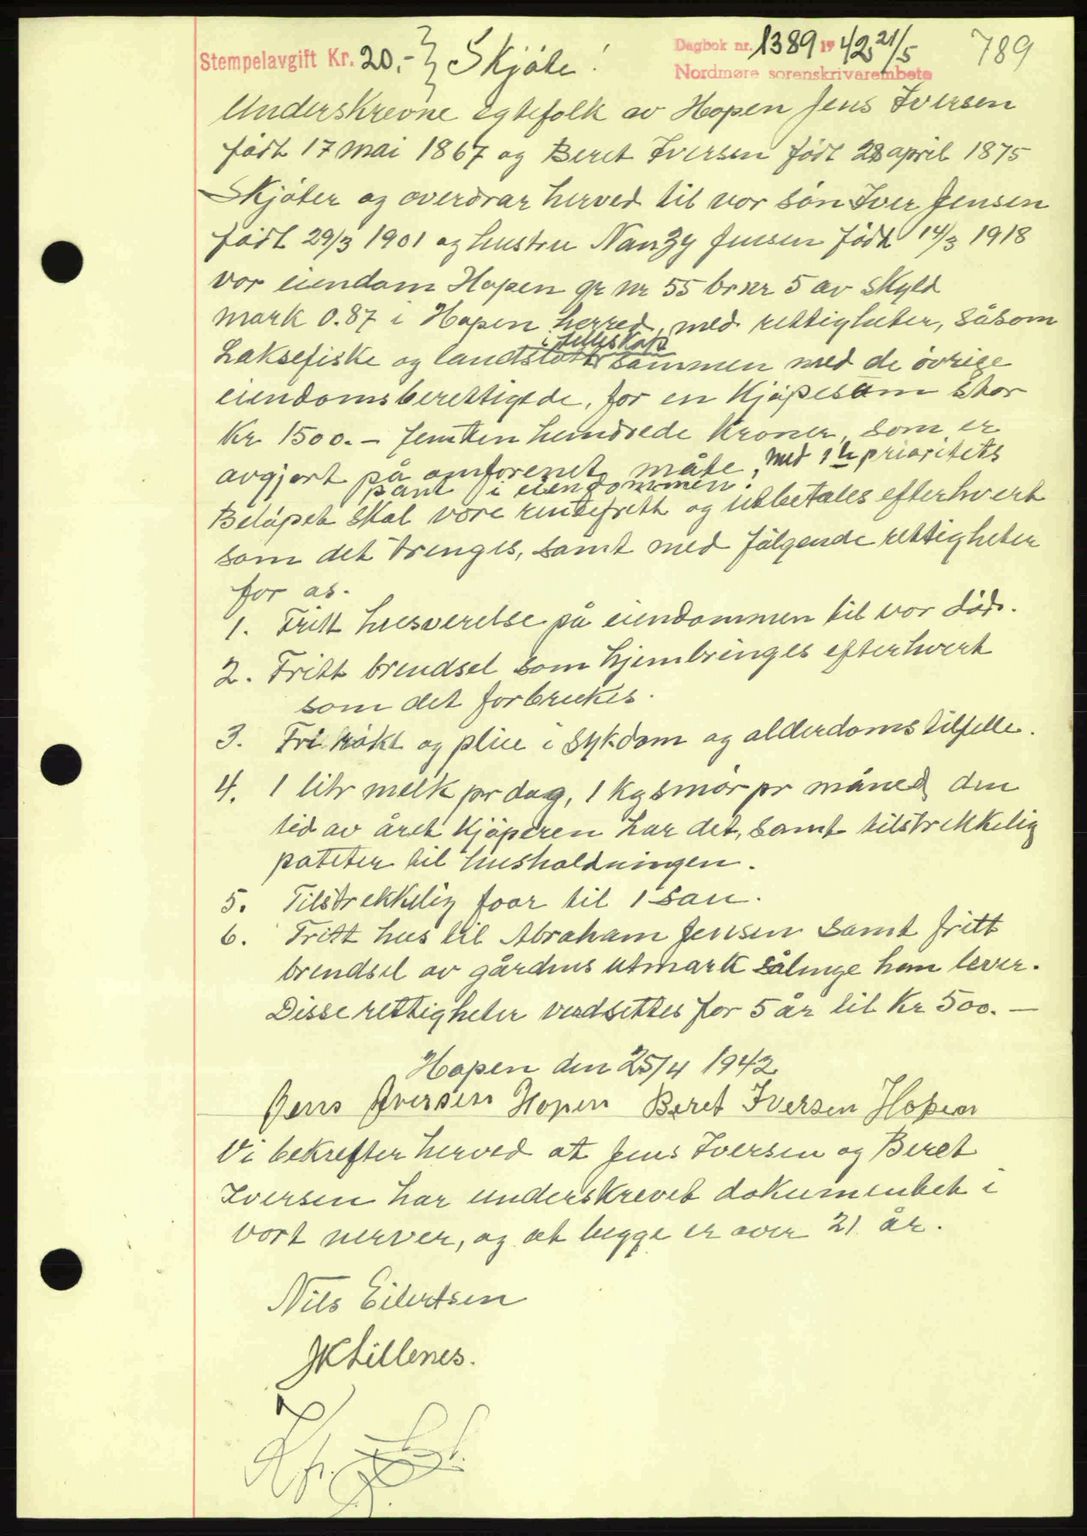 Stempelavgift Kr. 20.- } Skjöte! Dagbok nr. 1389 1942 21/5 789
Nordmøre sorenskrivarembete
Underskrevne egtefolk av Hopen Jens Iversen
födt 17 mai 1867 og Beret Iversen födt 28 april 1875
Skjöter og overdrar herved til vor sön Iver Jensen
födt 29/3 1901 og hustru Nanzy Jensen födt 14/3 1918
vor eiendom Hopen gr nr 55 br nr 5 av skyld
mark 0.87 i Hopen herred, med rettigheter, såsom
i felleskap
Laksefiske og landslott sammen med de övrige
eiendomsberettigede, for en Kjöpesum stor
Kr. 1500.- femten hundrede kroner, som er
avgjort på omforenet måte, med 1ste prioritets
pant i eiendommen.
Belöpet skal vöre rentefritt og utbetales efterhvert
som det trenges, samt med fölgende rettigheter
for os.
1. Fritt husverelse på eiendommen til vor död.
2. Fritt brendsel som hjembringes efterhvert
som det forbrukes.
3. Fri rökt og pleie i sykdom og alderdomstilfelle.
4. 1 litr melk pr dag, 1 kg smör pr måned den
tid av året Kjöperen har det, samt tilstrekkelig
poteter til husholdningen.
5. Tilstrekkelig foor til 1 sau.
6. Fritt hus til Abraham Jensen samt fritt
brendsel av gårdens utmark sålenge han lever.
Disse rettigheter verdsettes for 5 år til Kr 500.-
Hopen den 25/4 1942
Jens Iversen Hopen Beret Iversen Hopen
Vi bekrefter herved at Jens Iversen og Beret
Iversen har underskrevet dokumentet i
vort nerver, og at begge er over 21 år.
Nils Eilertsen
JK Lillenes.
Kfr.